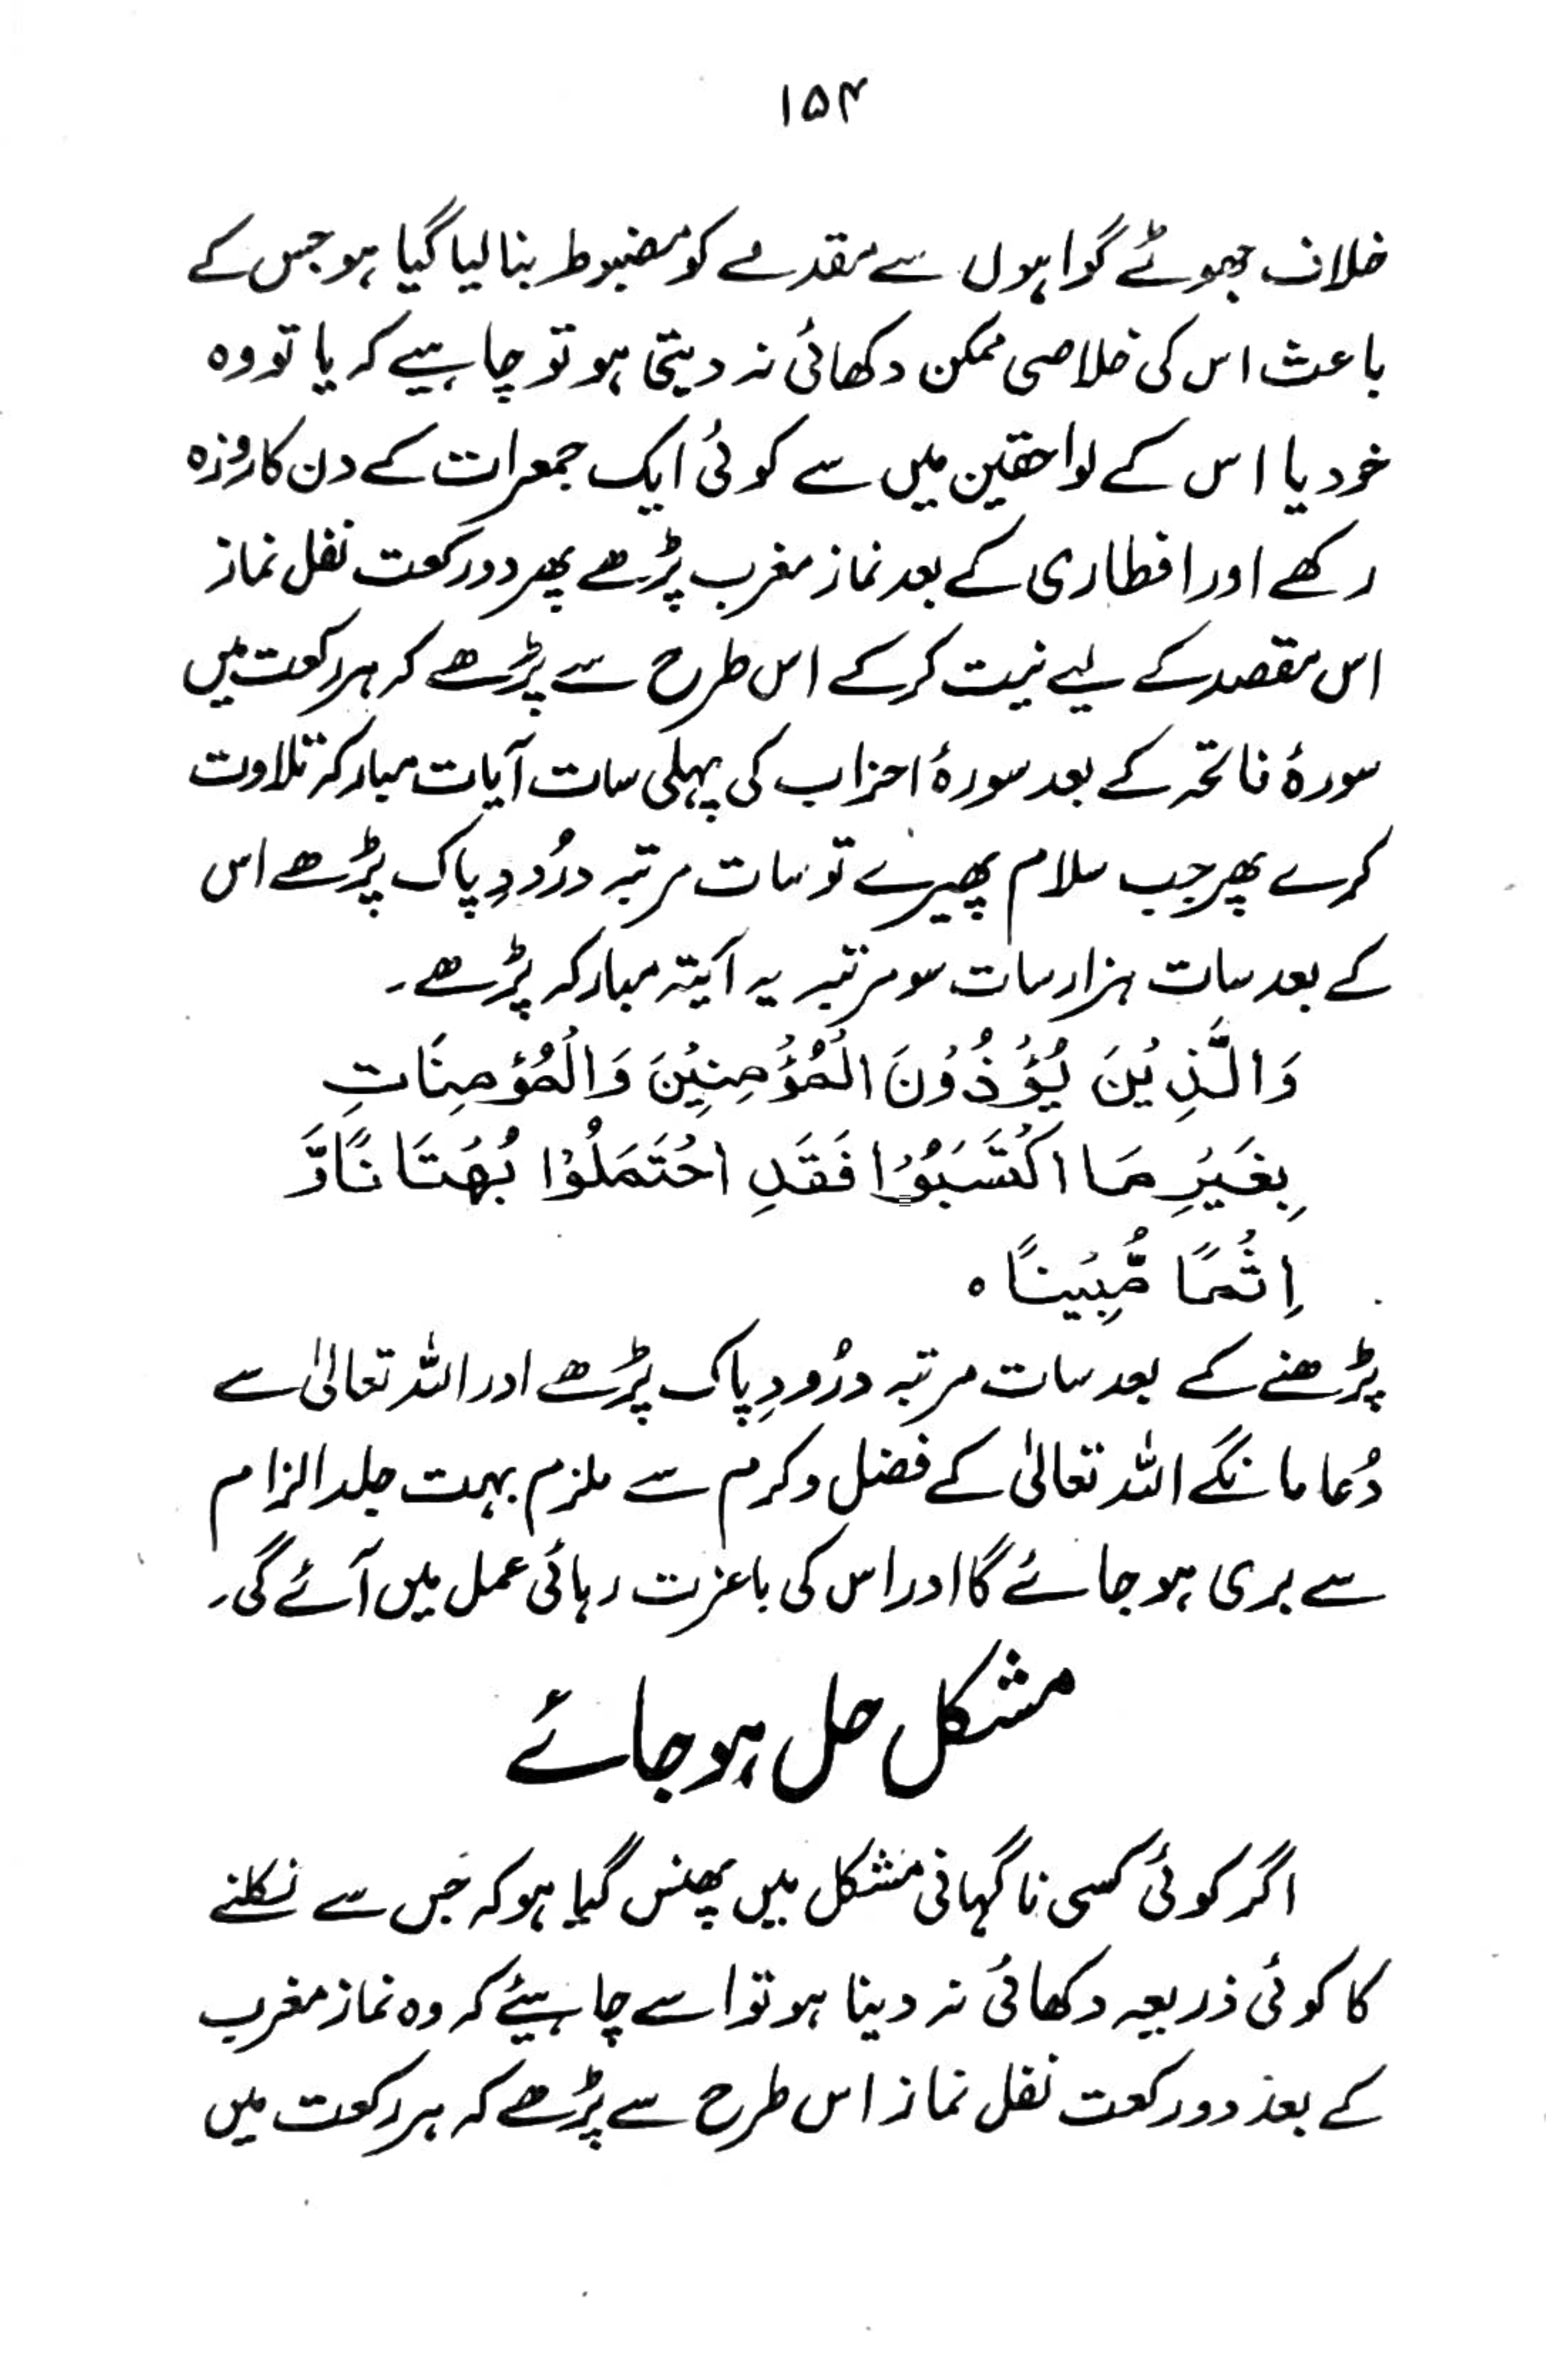 ۱۵۴
خلاف جھوٹے گواہوں سے مقدمے کو مضبوط بنا لیا گیا ہو جس کے
باعث اس کی خلاصی ممکن دکھائی نہ دیتی ہو تو چاہیے کہ یا تو وہ
خود یا اس کے لواحقین میں سے کوئی ایک جمعرات کے دن کا روزہ
رکھے اور افطاری کے بعد نماز مغرب پڑھے پھر دو رکعت نفل نماز
اس مقصد کے لیے نیت کر کے اس طرح سے پڑھے کہ ہر رکعت میں
سورۂ فاتحہ کے بعد سورۂ احزاب کی پہلی سات آیات مبارکہ تلاوت
کرے پھر جب سلام پھیرے تو سات مرتبہ درُودِ پاک پڑھے اس
کے بعد سات ہزار سات سو مرتبہ یہ آیتہ مبارکہ پڑھے۔
وَالَّذِیْنَ یُؤْذُوْنَ الْمُؤْمِنِیْنَ وَالْمُؤْمِنَاتِ
بِغَیْرِ مَا اکْتَسَبُوْا فَقَدِ احْتَمَلُوْا بُهْتَانًا وَّ
اِثْمًا مُّبِیْنًا ہ
پڑھنے کے بعد سات مرتبہ درُودِ پاک پڑھے اور اللہ تعالیٰ سے
دُعا مانگے اللہ تعالیٰ کے فضل و کرم سے ملزم بہت جلد الزام
سے بری ہو جائے گا اور اس کی باعزت رہائی عمل میں آئے گی۔
مشکل حل ہو جائے
اگر کوئی کسی ناگہانی مشکل میں پھنس گیا ہو کہ جس سے نکلنے
کا کوئی ذریعہ دکھائی نہ دیتا ہو تو اسے چاہیئے کہ وہ نماز مغرب
کے بعد دو رکعت نفل نماز اس طرح سے پڑھے کہ ہر رکعت میں